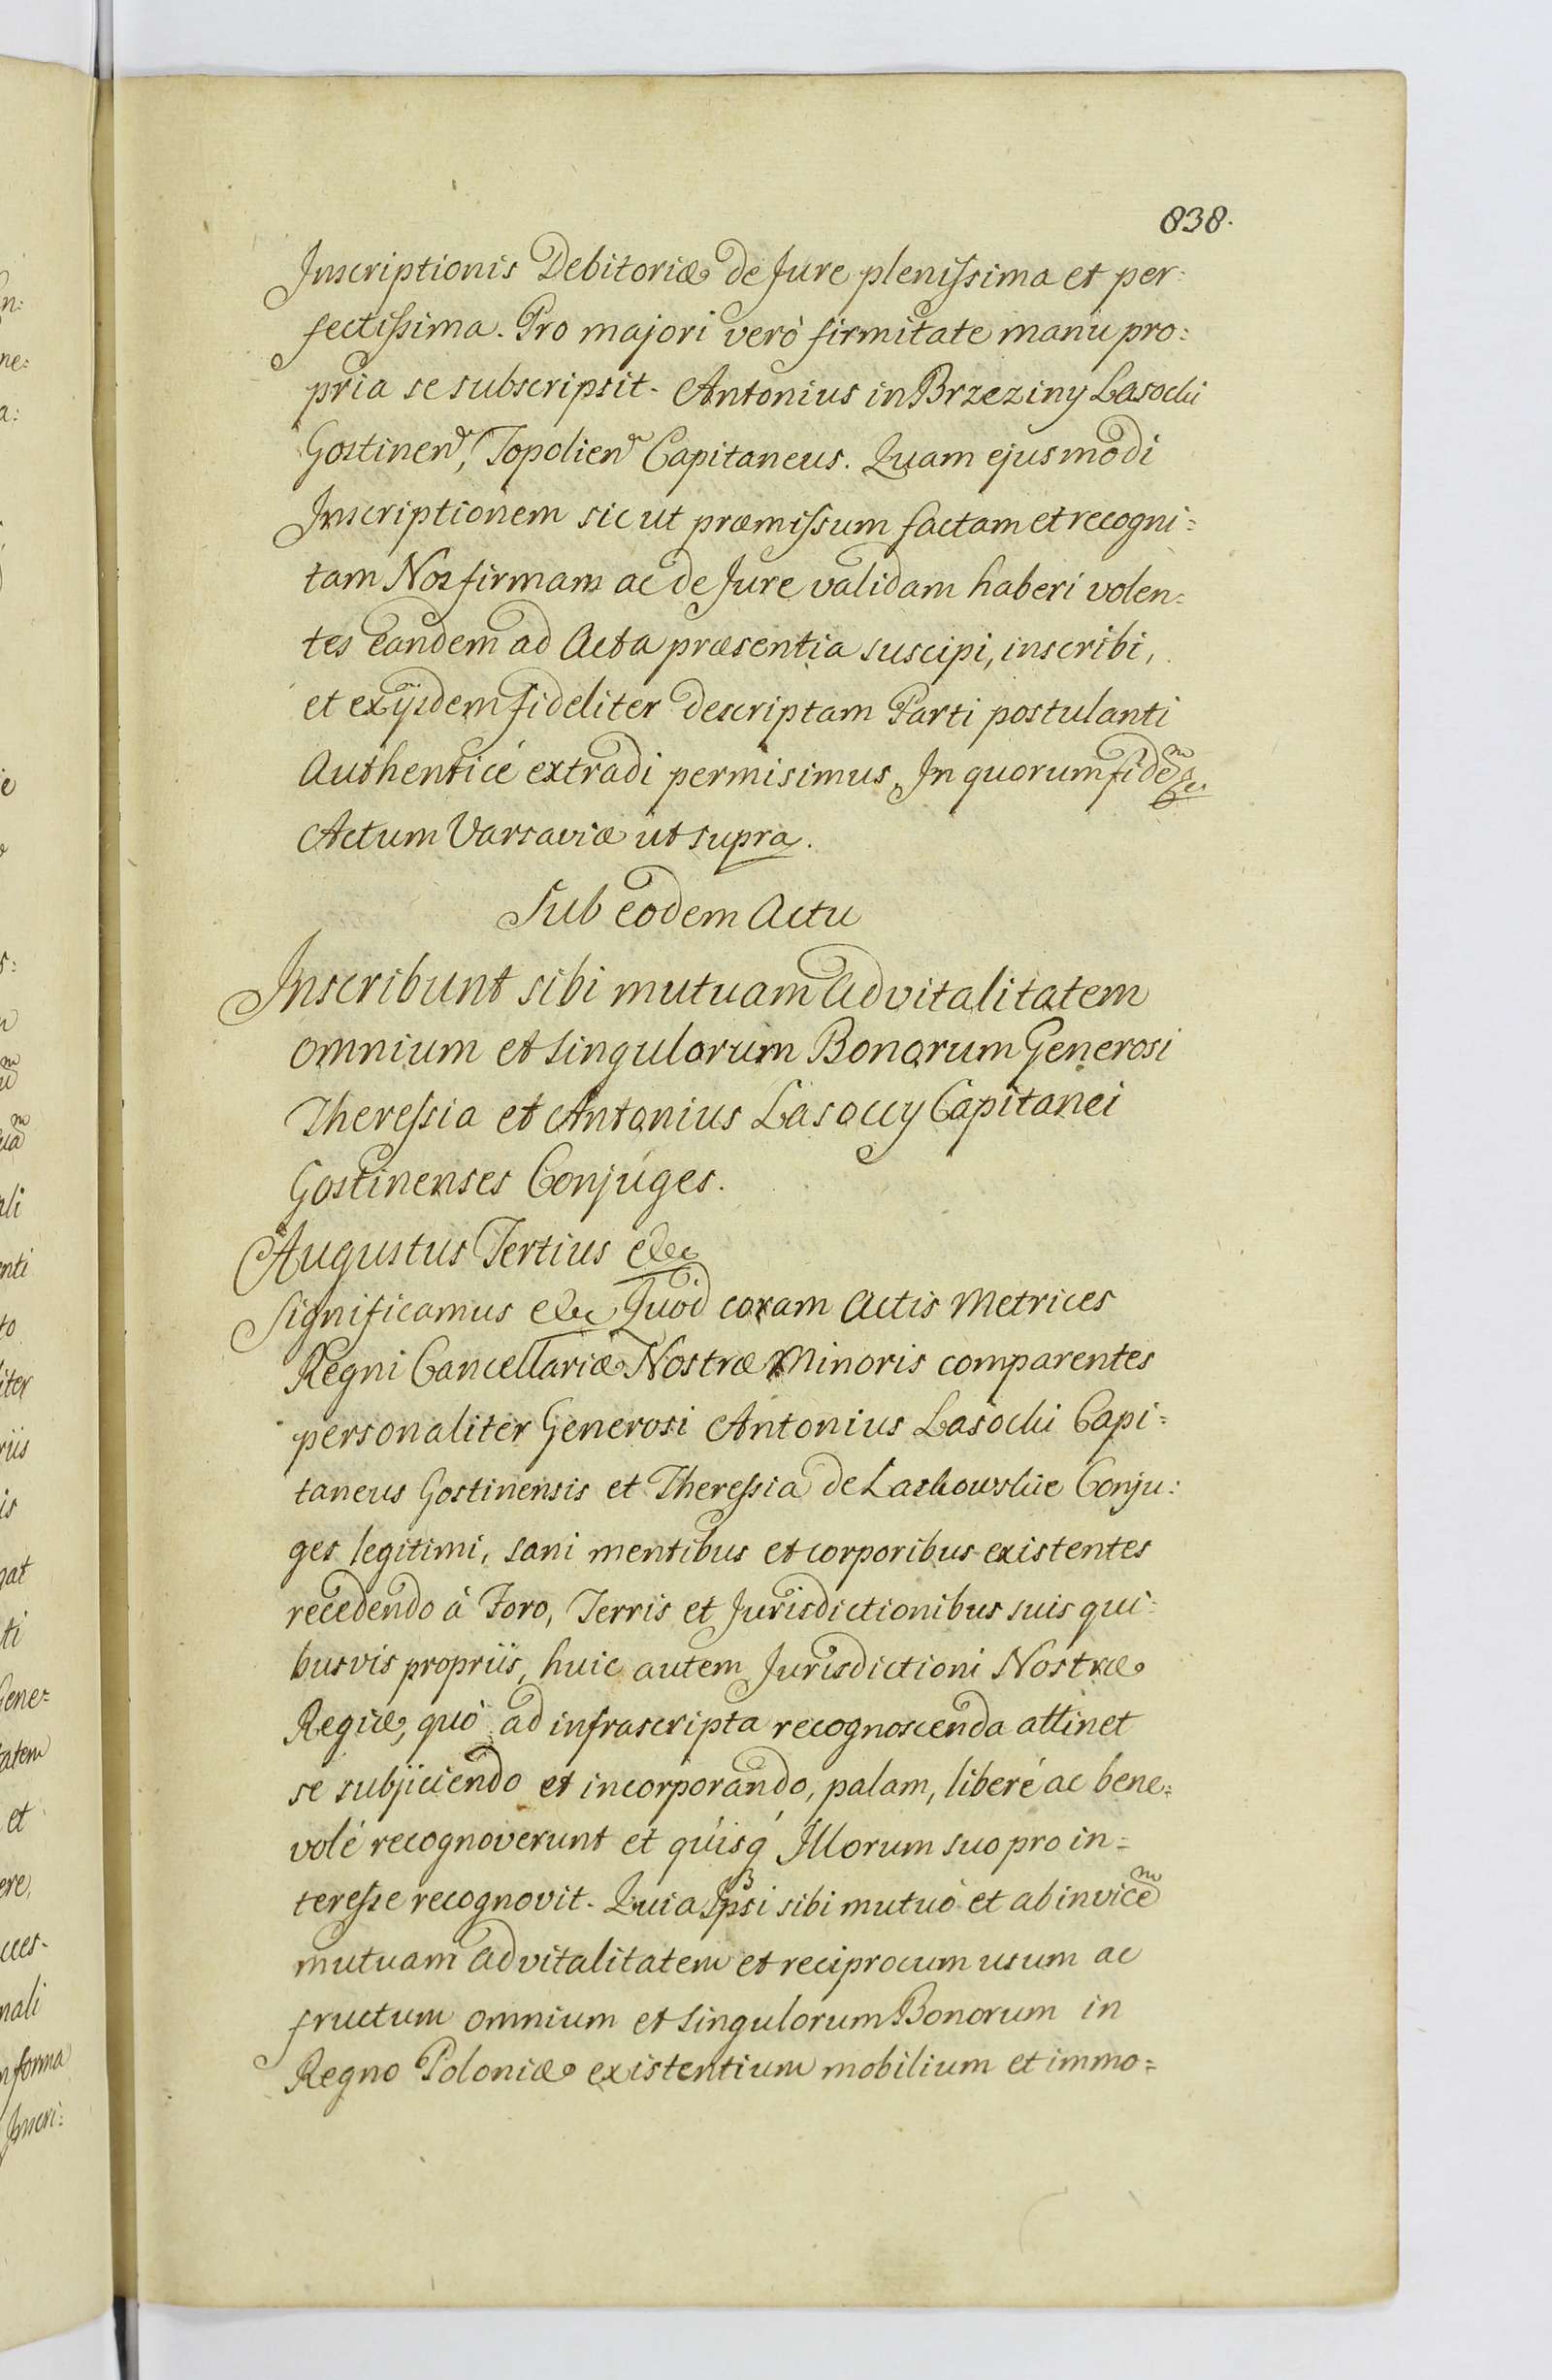 838.
Inscriptionis Debitoriæ de Jure plenissima et per:
fectissima. Pro majori verò firmitate manu pro:
pria se subscripsit. Antonius in Brzeziny Lasocki
Gostinen, Topolien Capitaneus. Quam ejusmodi
Inscriptionem sic ut præmissum factam et recogni=
tam Nos firmam ac de Jure validam haberi volen=
tes eandem ad Acta præsentia suscipi, inscribi,
et ex ijsdem fideliter descriptam Parti postulanti
Authenticé extradi permisimus. In quorum fidem &c.
Actum Varsaviæ ut supra.
Sub eodem Actu
Inscribunt sibi mutuam Advitalitatem
omnium et singulorum Bonorum Generosi
Theressia et Antonius Lasoccy Capitanei
Gostinenses Conjuges.
Augustus Tertius etc
Significamus etc Quod coram Actis Metrices
Regni Cancellariæ Nostræ Minoris comparentes
personaliter Generosi Antonius Lasocki Capi=
taneus Gostinensis et Theressia de Laskowskie Conju:
ges legitimi, sani mentibus et corporibus existentes
recedendo à Foro, Terris et Jurisdictionibus suis qui=
busvis propriis, huic autem Jurisdictioni Nostræ
Regiæ, quò ad infrascripta recognoscenda attinet
se subjiciendo et incorporando, palam, liberé ac bene=
volé recognoverunt et quisq' Illorum suo pro in=
teresse recognovit. Quia Ipsi sibi mutuò et ab invicem
mutuam advitalitatem et reciprocum usum ac
fructum omnium et singulorum Bonorum in
Regno Poloniæ existentium mobilium et immo=